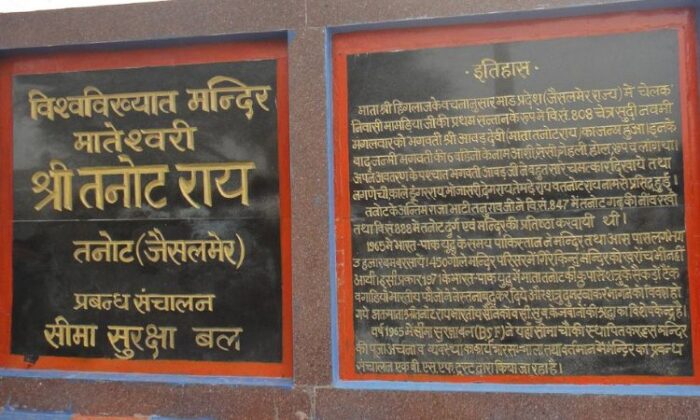 विश्वविख्यात मन्दिर
मातेश्वरी
श्री तनोट राय
तनोट (जैसलमेर)
प्रबन्ध संचालन
सीमा सुरक्षा बल
· इतिहास ·
माता श्री हिंगलाज के वचनानुसार माड प्रदेश (जैसलमेर राज्य) में चेलक
निवासी मामड़िया जी की प्रथम सन्तान के रूप में वि.सं. 808 चैत्र सुदी नवमी
मंगलवार को भगवती श्री आवड़ देवी (माता तनोट राय) का जन्म हुआ। इनके
बाद जन्मी भगवती की 6 बहिनों के नाम आशी, सेसी, गेहली, होल, रूप व लांग था।
अपने अवतरण के पश्चात भगवती आवड़ जी ने बहुत सारे चमत्कार दिखाये तथा
तनोट के अन्तिम राजा भाटी तनुराव जी ने वि.सं. 847 में तनोट गढ़ की नींव रखी
तथा वि.सं. 888 में तनोट दुर्ग एवं मन्दिर की प्रतिष्ठा करवायी थी।
1965 में भारत-पाक युद्ध के समय पाकिस्तान ने मन्दिर तथा आस पास लगभग
450 गोले मन्दिर परिसर में गिरे किन्तु मन्दिर को खरोंच भी नहीं
आयी। इसी प्रकार 1971 के भारत-पाक युद्ध में माता तनोट की कृपा से शत्रु के सैकड़ों टैंक
वर्ष 1965 में सीमा सुरक्षा बल (BSF) ने यहाँ सीमा चौकी स्थापित कर इस मन्दिर
की पूजा अर्चना व व्यवस्था का कार्यभार संभाला तथा वर्तमान में मन्दिर का प्रबन्ध
संचालन एक बी.एस.एफ. ट्रस्ट द्वारा किया जा रहा है।